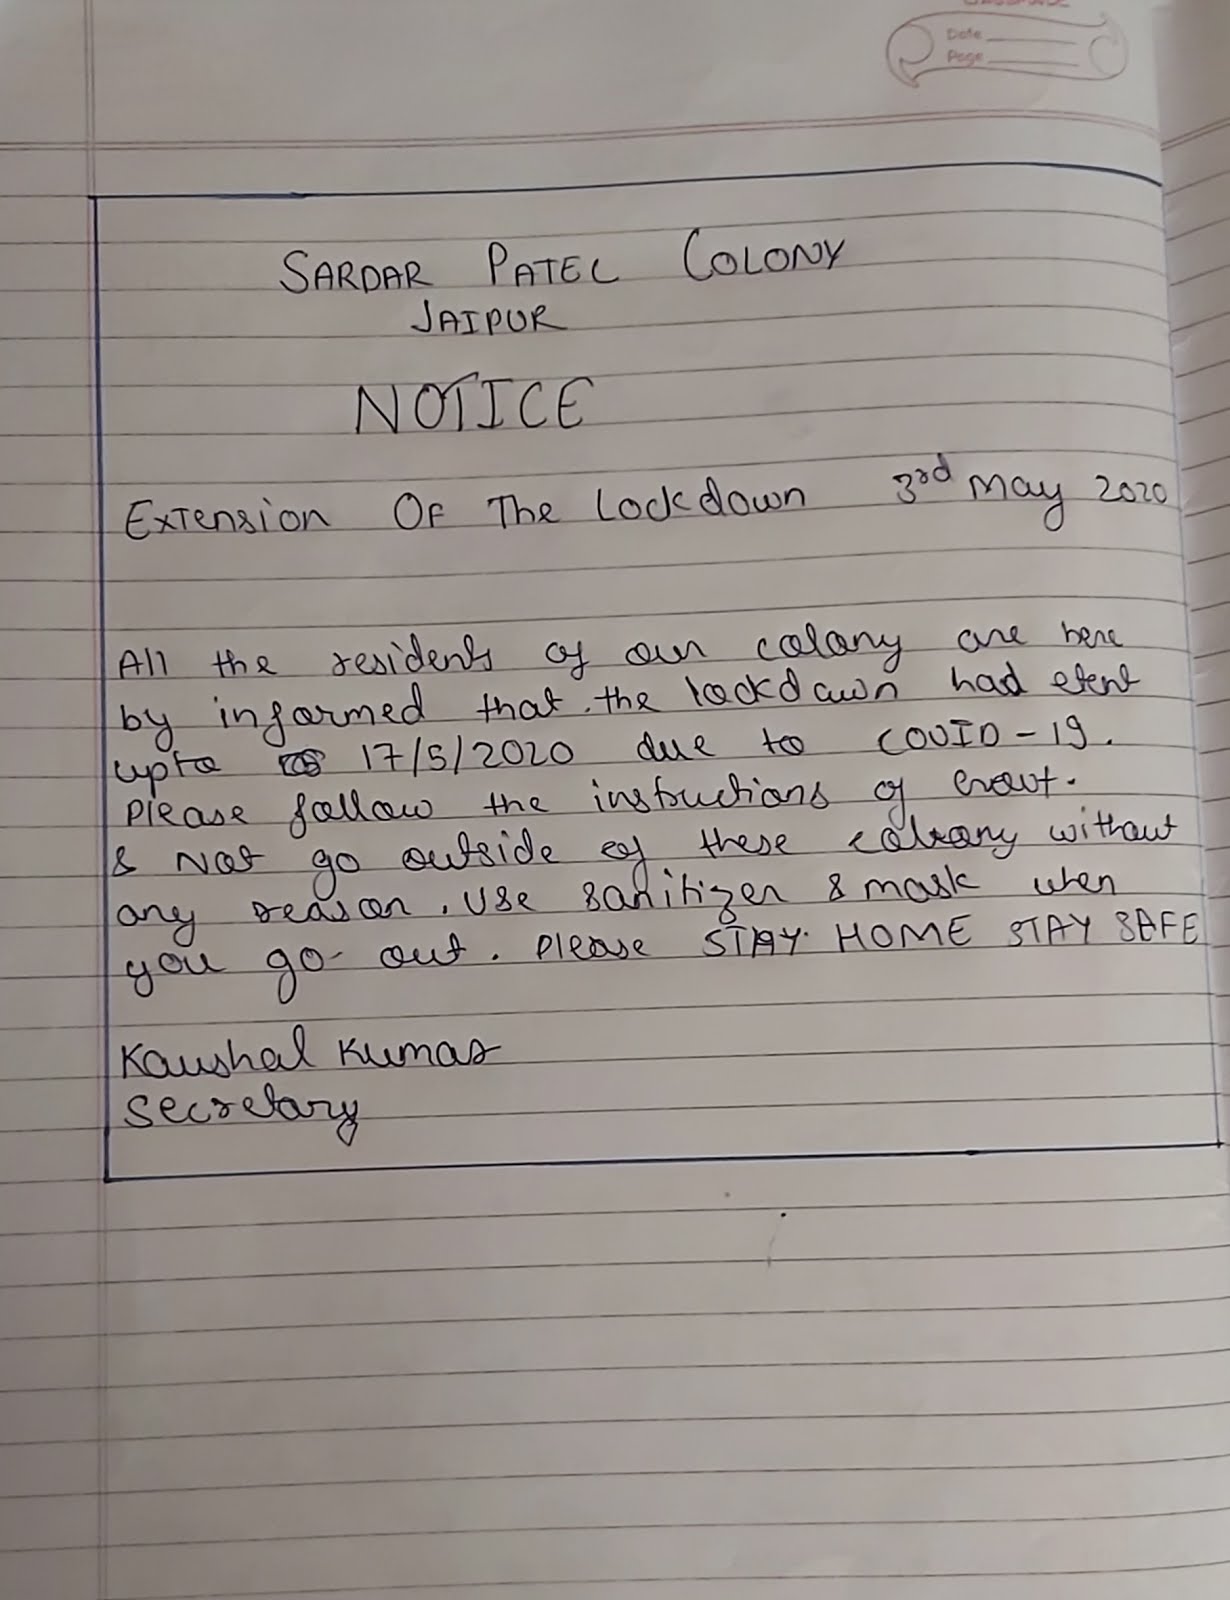 Date
Page
SARDAR PATEL COLONY
JAIPUR
NOTICE
Extension Of The Lockdown 3rd May 2020
All the residents of our colony are here
by informed that the lockdown had etent
upto 17/5/2020 due to COVID-19.
Please follow the instructions of
& Not go outside of these colony without
any reason. Use sanitizer & mask when
you go out. Please STAY HOME STAY SAFE
Kaushal Kumar
Secretary